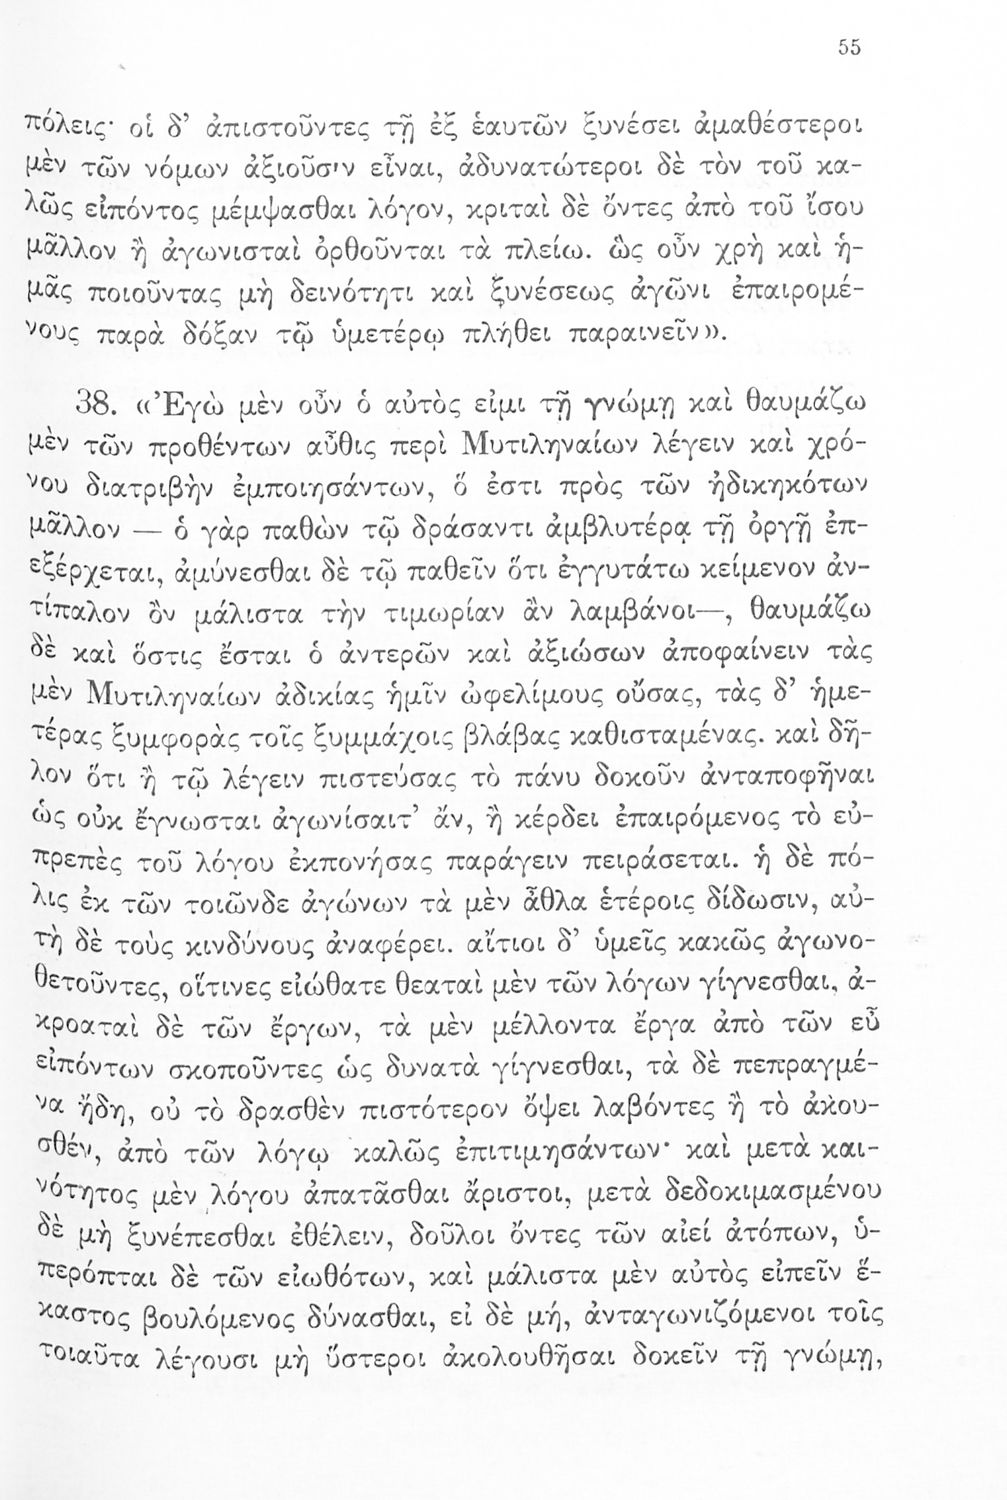 55
πόλεις· οἱ δ’ ἀπιστοῦντες τῇ ἐξ ἑαυτῶν ξυνέσει ἀμαθέστεροι
μὲν τῶν νόμων ἀξιοῦσιν εἶναι, ἀδυνατώτεροι δὲ τὸν τοῦ κα-
λῶς εἰπόντος μέμψασθαι λόγον, κριταὶ δὲ ὄντες ἀπὸ τοῦ ἴσου
μᾶλλον ἢ ἀγωνισταὶ ὀρθοῦνται τὰ πλείω. ὣς οὖν χρὴ καὶ ἡ-
μᾶς ποιοῦντας μὴ δεινότητι καὶ ξυνέσεως ἀγῶνι ἐπαιρομέ-
νους παρὰ δόξαν τῷ ὑμετέρῳ πλήθει παραινεῖν».
38. «Ἐγὼ μὲν οὖν ὁ αὐτὸς εἰμι τῇ γνώμῃ καὶ θαυμάζω
μὲν τῶν προθέντων αὖθις περὶ Μυτιληναίων λέγειν καὶ χρό-
νου διατριβὴν ἐμποιησάντων, ὅ ἐστι πρὸς τῶν ἠδικηκότων
μᾶλλον — ὁ γὰρ παθὼν τῷ δράσαντι ἀμβλυτέρᾳ τῇ ὀργῇ ἐπ-
εξέρχεται, ἀμύνεσθαι δὲ τῷ παθεῖν ὅτι ἐγγυτάτω κείμενον ἀν-
τίπαλον ὂν μάλιστα τὴν τιμωρίαν ἂν λαμβάνοι—, θαυμάζω
δὲ καὶ ὅστις ἔσται ὁ ἀντερῶν καὶ ἀξιώσων ἀποφαίνειν τὰς
μὲν Μυτιληναίων ἀδικίας ἡμῖν ὠφελίμους οὔσας, τὰς δ’ ἡμε-
τέρας ξυμφορὰς τοῖς ξυμμάχοις βλάβας καθισταμένας. καὶ δῆ-
λον ὅτι ἢ τῷ λέγειν πιστεύσας τὸ πάνυ δοκοῦν ἀνταποφῆναι
ὡς οὐκ ἔγνωσται ἀγωνίσαιτ’ ἄν, ἢ κέρδει ἐπαιρόμενος τὸ εὐ-
πρεπὲς τοῦ λόγου ἐκπονήσας παράγειν πειράσεται. ἡ δὲ πό-
λις ἐκ τῶν τοιῶνδε ἀγώνων τὰ μὲν ἆθλα ἑτέροις δίδωσιν, αὐ-
τὴ δὲ τοὺς κινδύνους ἀναφέρει. αἴτιοι δ’ ὑμεῖς κακῶς ἀγωνο-
θετοῦντες, οἵτινες εἰώθατε θεαταὶ μὲν τῶν λόγων γίγνεσθαι, ἀ-
κροαταὶ δὲ τῶν ἔργων, τὰ μὲν μέλλοντα ἔργα ἀπὸ τῶν εὖ
εἰπόντων σκοποῦντες ὡς δυνατὰ γίγνεσθαι, τὰ δὲ πεπραγμέ-
να ἤδη, οὐ τὸ δρασθὲν πιστότερον ὄψει λαβόντες ἢ τὸ ἀκου-
σθέν, ἀπὸ τῶν λόγῳ καλῶς ἐπιτιμησάντων· καὶ μετὰ και-
νότητος μὲν λόγου ἀπατᾶσθαι ἄριστοι, μετὰ δεδοκιμασμένου
δὲ μὴ ξυνέπεσθαι ἐθέλειν, δοῦλοι ὄντες τῶν αἰεί ἀτόπων, ὑ-
περόπται δὲ τῶν εἰωθότων, καὶ μάλιστα μὲν αὐτὸς εἰπεῖν ἕ-
καστος βουλόμενος δύνασθαι, εἰ δὲ μή, ἀνταγωνιζόμενοι τοῖς
τοιαῦτα λέγουσι μὴ ὕστεροι ἀκολουθῆσαι δοκεῖν τῇ γνώμῃ,